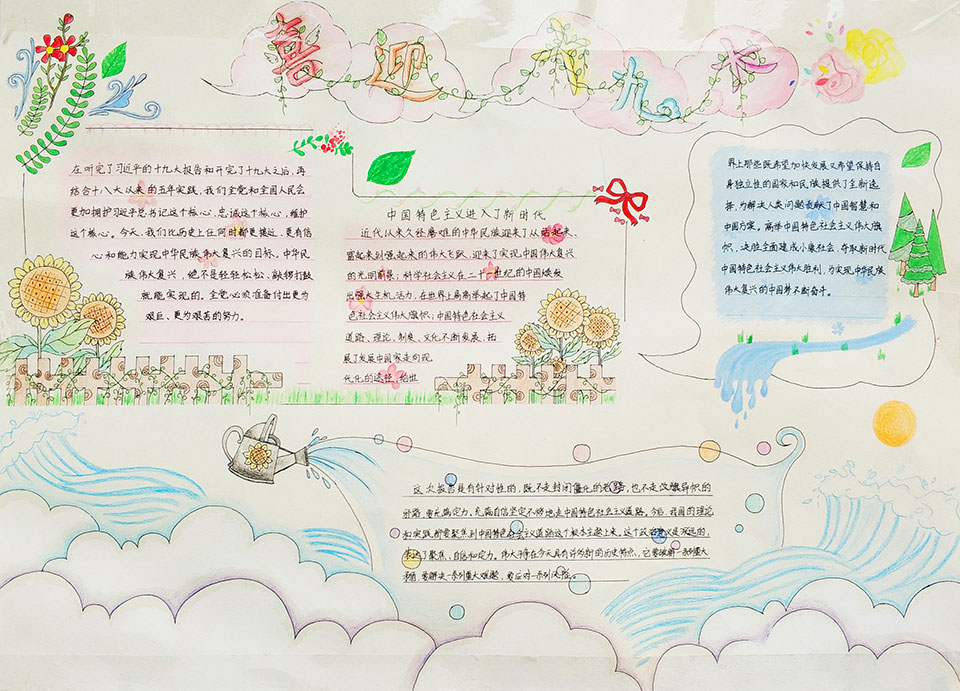 喜迎十九大
在听完了习近平的十九大报告和开完了十九大之后，再
结合十八大以来的五年实践，我们全党和全国人民会
更加拥护习近平总书记这个核心、忠诚这个核心、维护
这个核心。今天，我们比历史上任何时都更接近、更有信
心和能力实现中华民族伟大复兴的目标，中华民
族伟大复兴，绝不是轻轻松松、敲锣打鼓
就能实现的。全党必须准备付出更为
艰巨、更为艰苦的努力。
中国特色主义进入了新时代
近代以来久经磨难的中华民族迎来了从站起来、
富起来到强起来的伟大飞跃，迎来了实现中华伟大复兴
的光明前景；科学社会主义在二十一世纪的中国焕发
出强大生机活力，在世界上高高举起了中国特
色社会主义伟大旗帜；中国特色社会主义
道路、理论、制度、文化不断发展，拓
展了发展中国家走向现
代化的途径，给世
界上那些既希望加快发展又希望保持自
身独立性的国家和民族提供了全新选
择，为解决人类问题贡献了中国智慧和
中国方案。高举中国特色社会主义伟大旗
帜，决胜全面建成小康社会，夺取新时代
中国特色社会主义伟大胜利，为实现中华民族
伟大复兴的中国梦不断奋斗。
这次报告是有针对性的，既不走封闭僵化的老路，也不走改旗易帜的
邪路，要充满定力、充满自信坚定不移地走中国特色社会主义道路。今后，我国的理论
和实践都要聚焦到中国特色社会主义道路这个根本主题上来，这个政治意义是深远的，
表达了聚焦、自信和定力。伟大斗争在今天具有许多新的历史特点，它要破解一系列重大
矛盾，要解决一系列重大难题，要应对一系列风险。